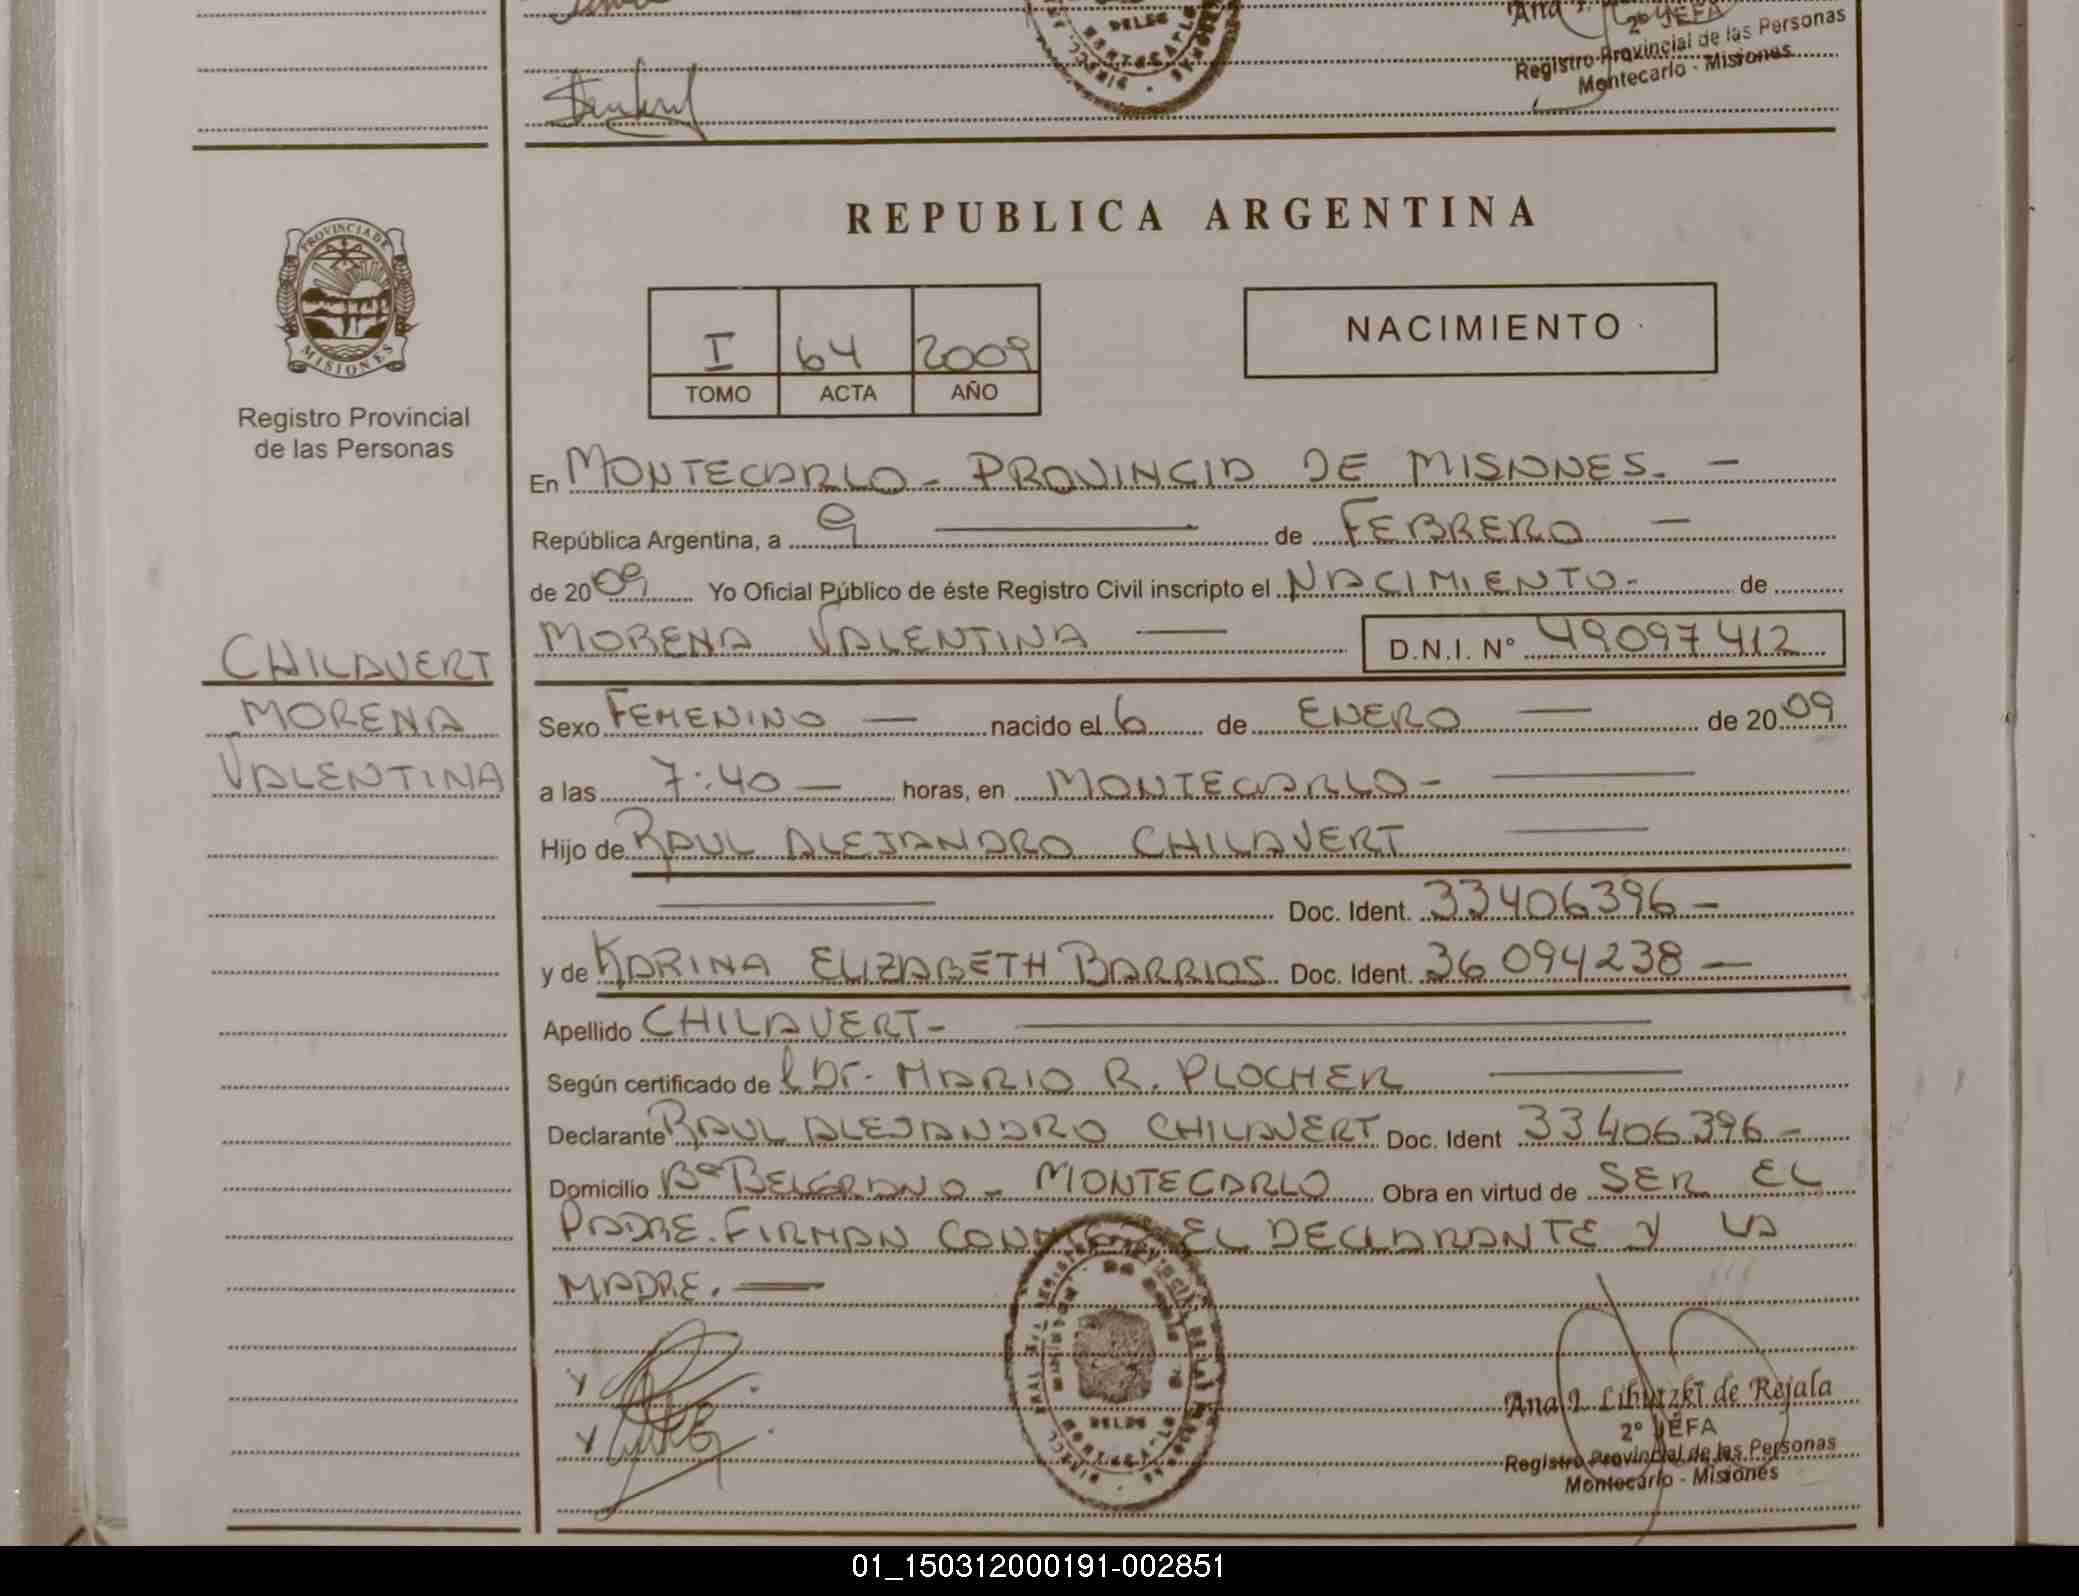 Ana I.
2º JEFA
Registro Provincial de las Personas
Montecarlo - Misiones
DELEG
MONTECARLO
PROVINCIA DE
MISIONES
Registro Provincial
de las Personas
CHILAVERT
MORENA
VALENTINA
REPUBLICA ARGENTINA
I 64 2009
TOMO ACTA AÑO
NACIMIENTO
En MONTECARLO - PROVINCIA DE MISIONES. -
República Argentina, a 9 — de FEBRERO —
de 2009 Yo Oficial Público de éste Registro Civil inscripto el NACIMIENTO - de
MORENA VALENTINA — D.N.I. Nº 49097412
Sexo FEMENINO — nacido el 6 de ENERO — de 2009
a las 7:40 — horas, en MONTECARLO - —
Hijo de RAUL ALEJANDRO CHILAVERT —
— Doc. Ident. 33406396 -
y de KARINA ELIZABETH BARRIOS Doc. Ident. 36094238 —
Apellido CHILAVERT - —
Según certificado de Dr. MARIO R. PLOCHER —
Declarante RAUL ALEJANDRO CHILAVERT Doc. Ident 33406396 -
Domicilio Bº BELGRANO - MONTECARLO Obra en virtud de SER EL
PADRE. FIRMAN CONMIGO EL DECLARANTE Y LA
MADRE. —
DELEG
MONTECARLO
Ana I. Lihutzki de Rejala
2º JEFA
Registro Provincial de las Personas
Montecarlo - Misiones
01_150312000191-002851